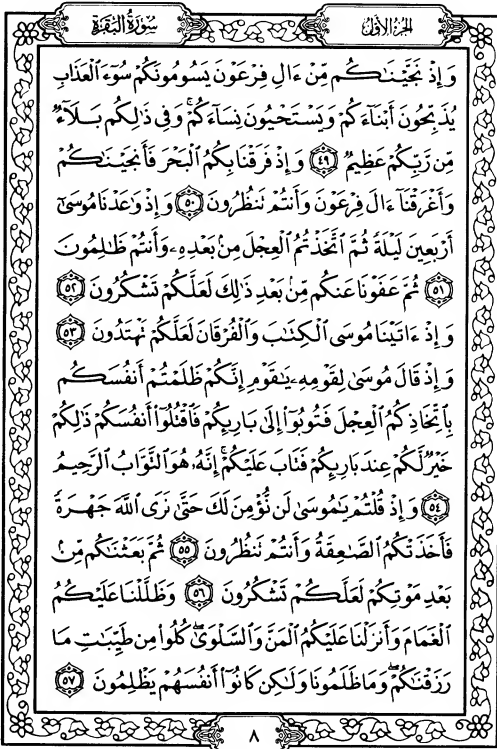 الجزء الأول
سورة البقرة
وَإِذْ نَجَّيْنَاكُم مِّنْ ءَالِ فِرْعَوْنَ يَسُومُونَكُمْ سُوٓءَ الْعَذَابِ
يُذَبِّحُونَ أَبْنَآءَكُمْ وَيَسْتَحْيُونَ نِسَآءَكُمْ ۚ وَفِى ذَٰلِكُم بَلَآءٌ
مِّن رَّبِّكُمْ عَظِيمٌ ٤٩ وَإِذْ فَرَقْنَا بِكُمُ الْبَحْرَ فَأَنجَيْنَاكُمْ
وَأَغْرَقْنَآ ءَالَ فِرْعَوْنَ وَأَنتُمْ تَنظُرُونَ ٥٠ وَإِذْ وَاعَدْنَا مُوسَىٰٓ
أَرْبَعِينَ لَيْلَةً ثُمَّ اتَّخَذْتُمُ الْعِجْلَ مِنۢ بَعْدِهِۦ وَأَنتُمْ ظَالِمُونَ
٥١ ثُمَّ عَفَوْنَا عَنكُم مِّنۢ بَعْدِ ذَٰلِكَ لَعَلَّكُمْ تَشْكُرُونَ ٥٢
وَإِذْ ءَاتَيْنَا مُوسَى الْكِتَابَ وَالْفُرْقَانَ لَعَلَّكُمْ تَهْتَدُونَ ٥٣
وَإِذْ قَالَ مُوسَىٰ لِقَوْمِهِۦ يَاقَوْمِ إِنَّكُمْ ظَلَمْتُمْ أَنفُسَكُم
بِاتِّخَاذِكُمُ الْعِجْلَ فَتُوبُوٓا۟ إِلَىٰ بَارِئِكُمْ فَاقْتُلُوٓا۟ أَنفُسَكُمْ ذَٰلِكُمْ
خَيْرٌ لَّكُمْ عِندَ بَارِئِكُمْ فَتَابَ عَلَيْكُمْ ۚ إِنَّهُۥ هُوَ التَّوَّابُ الرَّحِيمُ
٥٤ وَإِذْ قُلْتُمْ يَامُوسَىٰ لَن نُّؤْمِنَ لَكَ حَتَّىٰ نَرَى اللَّهَ جَهْرَةً
فَأَخَذَتْكُمُ الصَّاعِقَةُ وَأَنتُمْ تَنظُرُونَ ٥٥ ثُمَّ بَعَثْنَاكُم مِّنۢ
بَعْدِ مَوْتِكُمْ لَعَلَّكُمْ تَشْكُرُونَ ٥٦ وَظَلَّلْنَا عَلَيْكُمُ
الْغَمَامَ وَأَنزَلْنَا عَلَيْكُمُ الْمَنَّ وَالسَّلْوَىٰ ۖ كُلُوا۟ مِن طَيِّبَاتِ مَا
رَزَقْنَاكُمْ ۖ وَمَا ظَلَمُونَا وَلَٰكِن كَانُوٓا۟ أَنفُسَهُمْ يَظْلِمُونَ ٥٧
٨